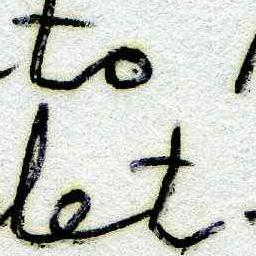 to
let